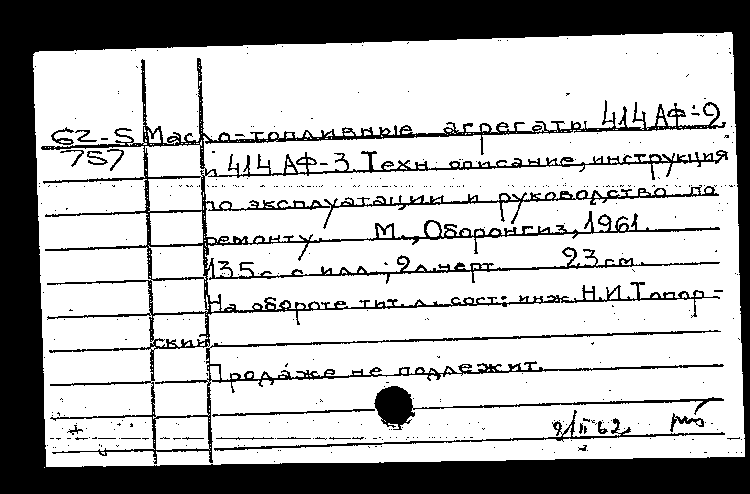 62-5 Масло-топливные агрегаты 414АФ-2
757 и 414АФ-3. Техн. описание, инструкция
по эксплуатации и руководство по
ремонту. М., Оборонгиз, 1961.
135 с. с илл.; 2 л. черт. 23 см.
На обороте тит. л. сост: инж. Н.И. Топор-
ский.
Продаже не подлежит.
2/II 62.